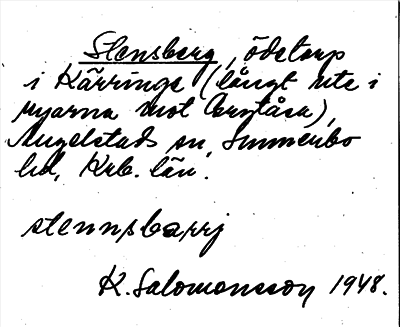 Stensberg, ödetorp
i Kärringe (långt ute i
myarna mot Bergåsa),
Angelstads sn, Sunnerbo
hd, Krb. län.
stennsbarrj
K. Salomonsson 1948.